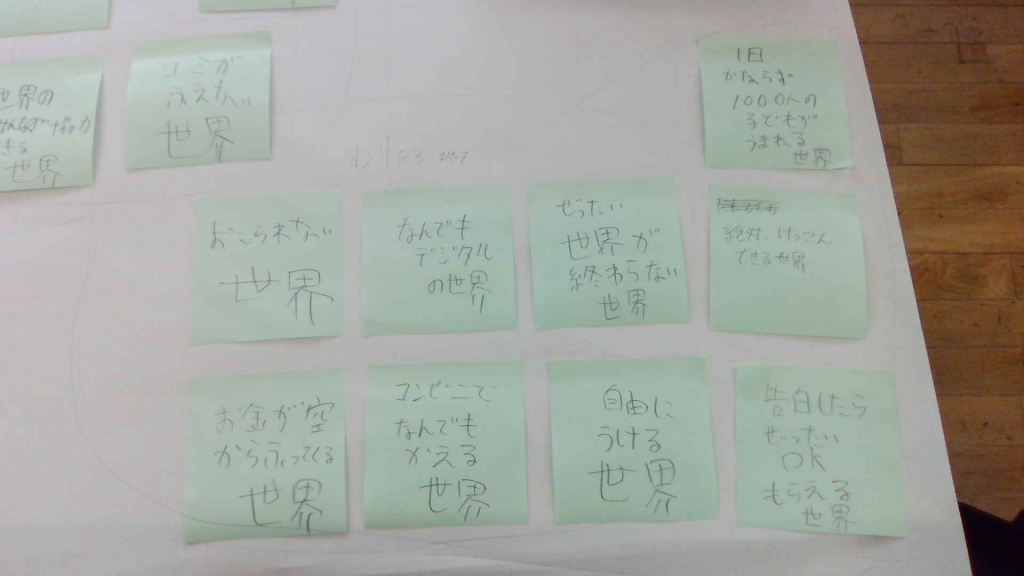 世界の
みんなが協力
できる
世界
ゴミが
ふえない
世界
1日
かならず
1000人の
子どもが
うまれる
世界
おこられない
世界
なんでも
デジタル
の世界
ぜったい
世界が
終わらない
世界
絶対、けっこん
できる世界
お金が空
からふってくる
世界
コンビニで
なんでも
かえる
世界
自由に
うける
世界
告白したら
ぜったい
OK
もらえる
世界